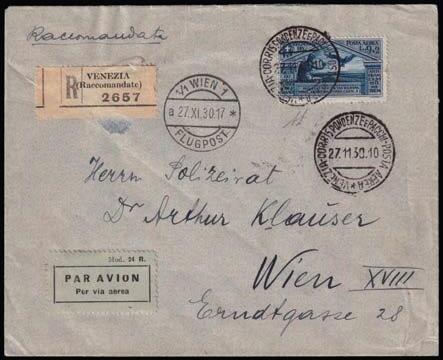 Raccomandata
R
VENEZIA
(Raccomandate)
2657
1/1 WIEN 1
a 27.XI.30.17 *
FLUGPOST
POSTA AEREA
VENEZIA·CORRISPONDENZE E PACCHI·POSTA AEREA
27.11.30.10
Herrn Polizeirat
Dr Arthur Klauser
Wien XVIII
Erndtgasse 28
Mod. 24 R.
PAR AVION
Per via aerea